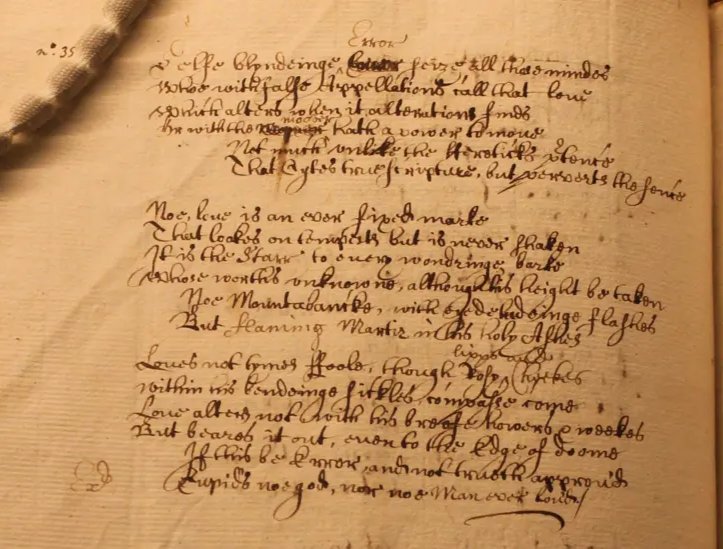 nº: 35
Error
Selfe blyndeinge seize all those mindes
Whoe with false Appellations call that love
Which alters when it alterations finds
mover
Or with the hath a power to move
Not much unlike the Hereticks p̱tence
That Cytes true Scripture, but perverts the sence
Noe, love is an ever fixed marke
That lookes on tempests but is never shaken
It is the Starr to every wondringe barke
Whose worth's unknowne, although his height be taken
Noe Mountabancke, with eyedeludeinge flashes
But flaming Martir in his holy Ashes
lippes and
Loves not tymes Foole, though Rosy Cheekes
within his bendeinge sickles, compasse come
Love alters not with his breefe howers & weekes
But beares it out, even to the Edge of doome
If this be Error, and not trueth approv'd
Cupids noe god, nor noe Man ever lov'd